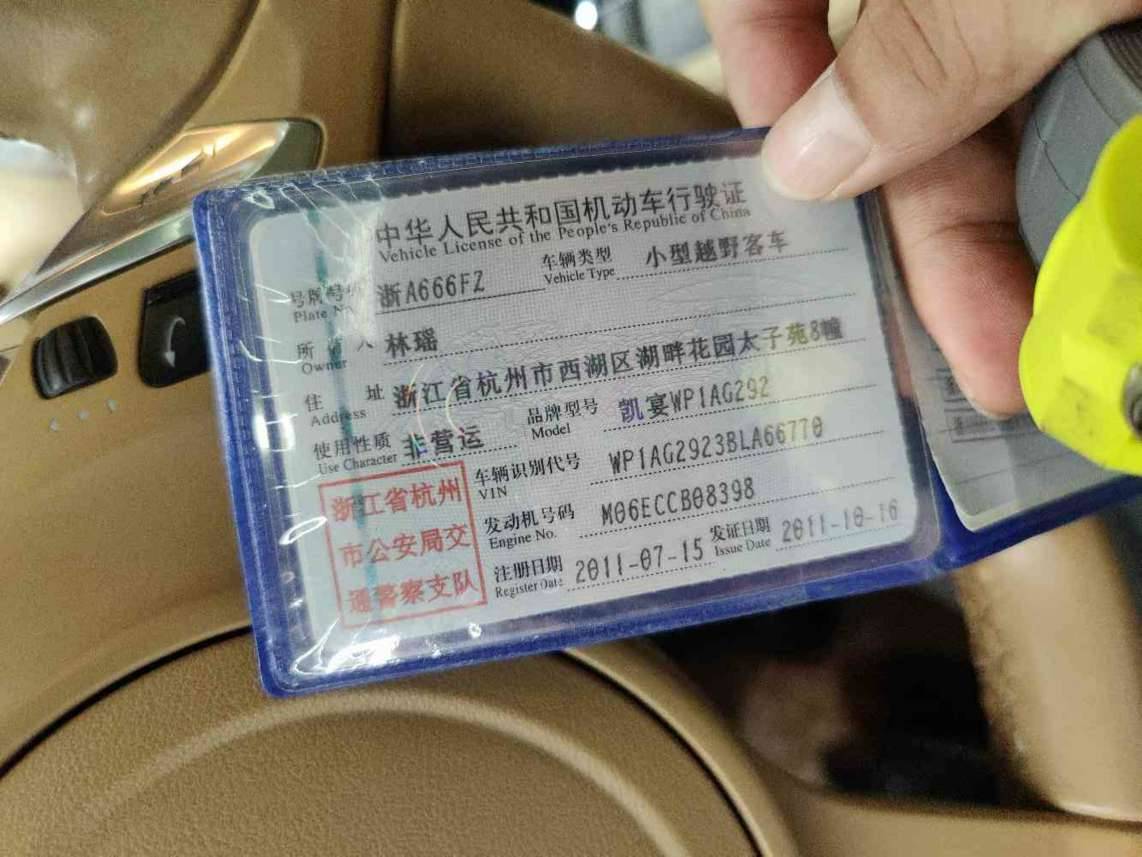 中华人民共和国机动车行驶证
Vehicle License of the People's Republic of China
号牌号码 浙A666FZ 车辆类型 小型越野客车
Plate No. Vehicle Type
所有人 林瑶
Owner
住址 浙江省杭州市西湖区湖畔花园太子苑8幢
Address
使用性质 非营运 品牌型号 凯宴WP1AG292
Use Character Model
浙江省杭州
市公安局交
通警察支队
车辆识别代号 WP1AG2923BLA66770
VIN
发动机号码 M06ECCB08398
Engine No.
注册日期 2011-07-15 发证日期 2011-10-16
Register Date Issue Date